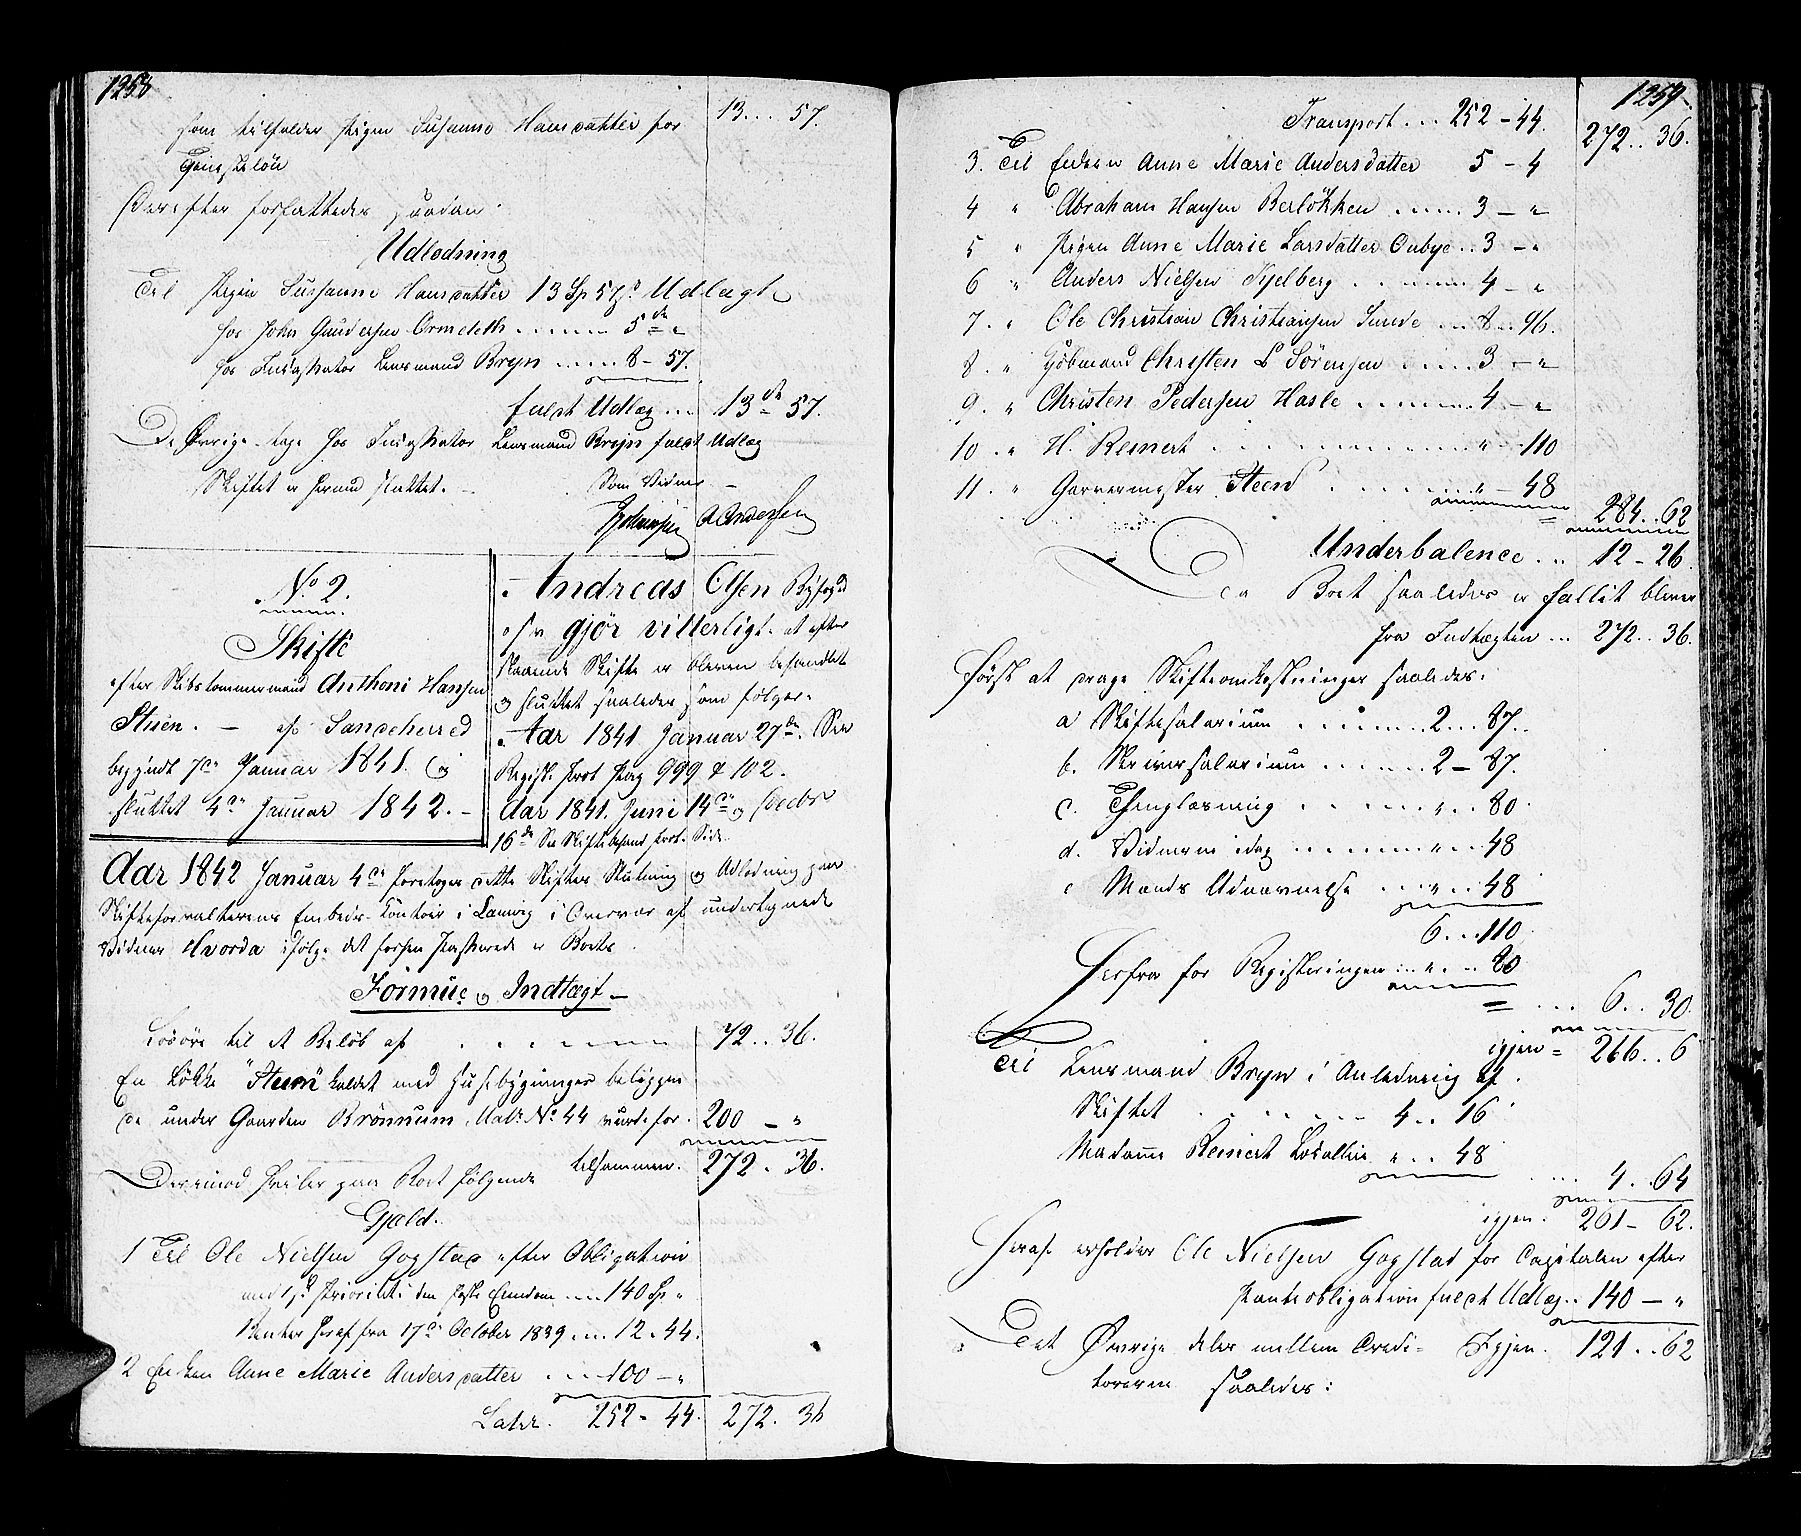 1258
som tilfalder Pigen Susanne Hansdatter for 13...57.
Tjenesteløn
Derefter forfattedes saadan
Udlodning
Til Pigen Susanne Hansdatter 13 Sp 57 s Udlagt
hos John Gundersen Ormeleth ...... 5 " "
hos Incassator Lensmand Bryn ..... 8 - 57.
fuldt Udlæg ... 13 57.
De Øvrige tage hos Incassator Lensmand Bryn fuldt Udlæg
Skiftet er hermed sluttet. -
Som Vidner -
Johansen A Andersen
No 2.
Skifte
efter Skibstømmermand Anthoni Hansen
Steen. - af Sandeherred
begyndt 7de Januar 1841. og
sluttet 4de Januar 1842. -
Andreas Olsen Byfoged
gjør vitterligt. at efter
staaende Skifte er bleven behandlet
og sluttet saaledes som følger.
Aar 1841 Januar 27de. See
Regist. Prot Pag 999 & 102.
Aar 1841. Juni 14de og Decbr
16de See Skiftebehand. Prot. Side.
Aar 1842 Januar 4de foretoges dette Skiftes Slutning og Udlodning paa
Skifteforvalterens Embeds-Contoir i Laurvig i Overvær af undertegnede
Vidner Hvorda ifølge det forhen Passerede er Boets
Formue og Indtægt -
Løsøre til et Beløb af ...... 72..36.
En Løkke "Steen" kaldet med Huusebygninger beliggen
de under Gaarden Brønnum, Matr. No 44 vurd. for. 200 - "
tilsammen. 272.36.
Derimod hviler paa Boet følgende
Gjæld.
1 Til Ole Nielsen Gogstad efter Obligation
med 1ste Prioritet i den faste Eiendom ... 140 Sp "
Renter heraf fra 17de October 1839 ... 12.44.
2 Enken Anne Marie Andersdatter .... 100 - "
Later. 252 - 44. 272.36
1259
Transport ... 252 - 44. 272..36.
3. Til Enken Anne Marie Andersdatter 5 - 4
4 " Abraham Hansen Berløkken ..... 3 - "
5 " Pigen Anne Marie Larsdatter Onbye .. 3 - "
6 " Anders Nielsen Kjelberg ...... 4 - "
7. " Ole Christian Christiansen Sunde ... 8..96.
8. " Kjøbmand Christen L Sørensen ..... 3 - "
9. " Christen Pedersen Hasle ...... 4 - "
10. " H. Reinert ............ " .. 110
11. " Garvermester Steen ....... " - 48
= 284..62
Underbalence .. 12 - 26.
Da Boet saaledes er fallit bliver
fra Indtægten ... 272..36.
Først at drage Skifteomkostninger saaledes:
a Skiftesalarium ........ 2...87.
b. Skriversalarium ....... 2 - 87.
c. Thinglæsning ....... " .. 80.
d. Vidnerne idag ....... " .. 48
e Mænds Udnævnelse .... " ... 48
6...110.
Herfra for Registeringen ... " ... 80
= ... 6..30.
igjen = 266..6
Til Lensmand Bryn i Anledning af
Skiftet ....... 4..16
Madame Reinert Localleie " .. 48
.... 4..64
igjen. 261 - 62.
Heraf erholder Ole Nielsen Gogstad for Capitalen efter
Panteobligation fuldt Udlæg .. 140 - "
Det Øvrige deles mellem Credi= Igjen. 121..62
torerne saaledes: